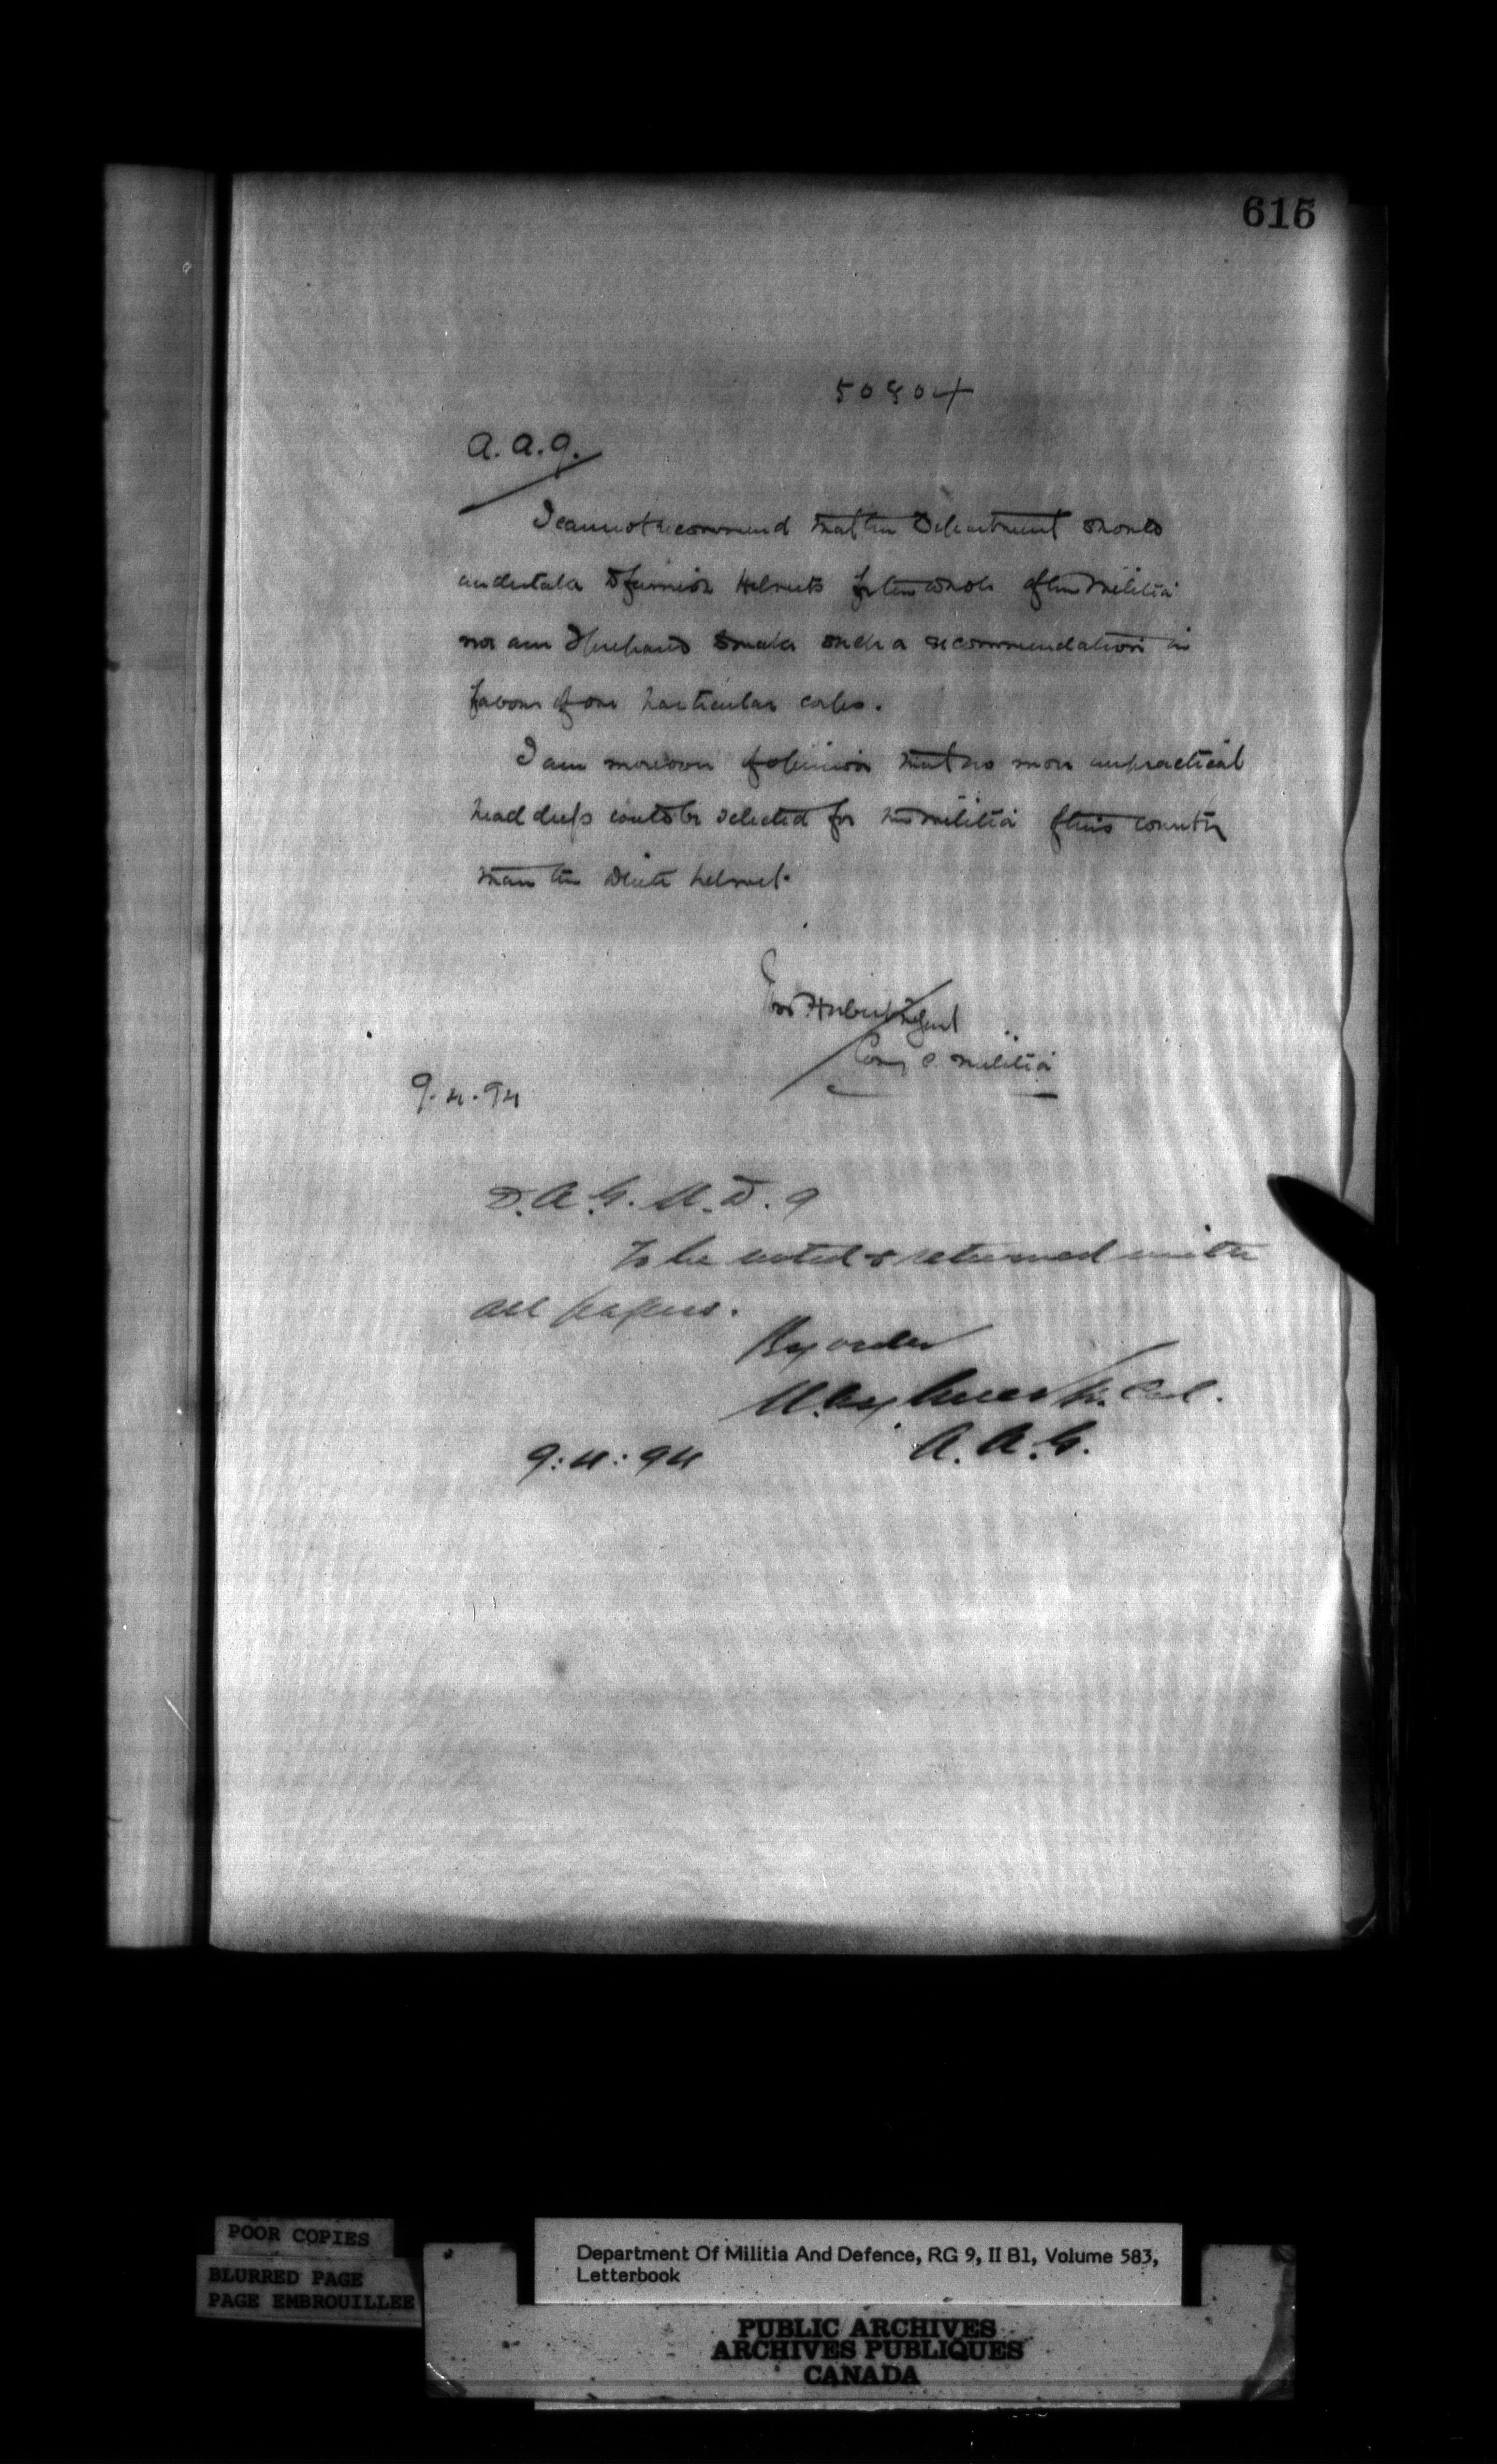 615
50804
A.A.G.
I cannot recommend that the Department should
undertake to furnish Helmets for the whole of the Militia
nor am I prepared to make such a recommendation in
favour of one particular corps.
I am moreover of opinion that no more unpractical
head dress could be selected for the Militia of this country
than the White helmet.
Ivor Herbert M Genl
Comg C. Militia
9.4.94
D.A.G. M.D. 9
To be noted & returned with
all papers.
By order
Col.
A.A.G.
9:4:94
POOR COPIES
BLURRED PAGE
PAGE EMBROUILLEE
Department Of Militia And Defence, RG 9, II B1, Volume 583,
Letterbook
PUBLIC ARCHIVES
ARCHIVES PUBLIQUES
CANADA